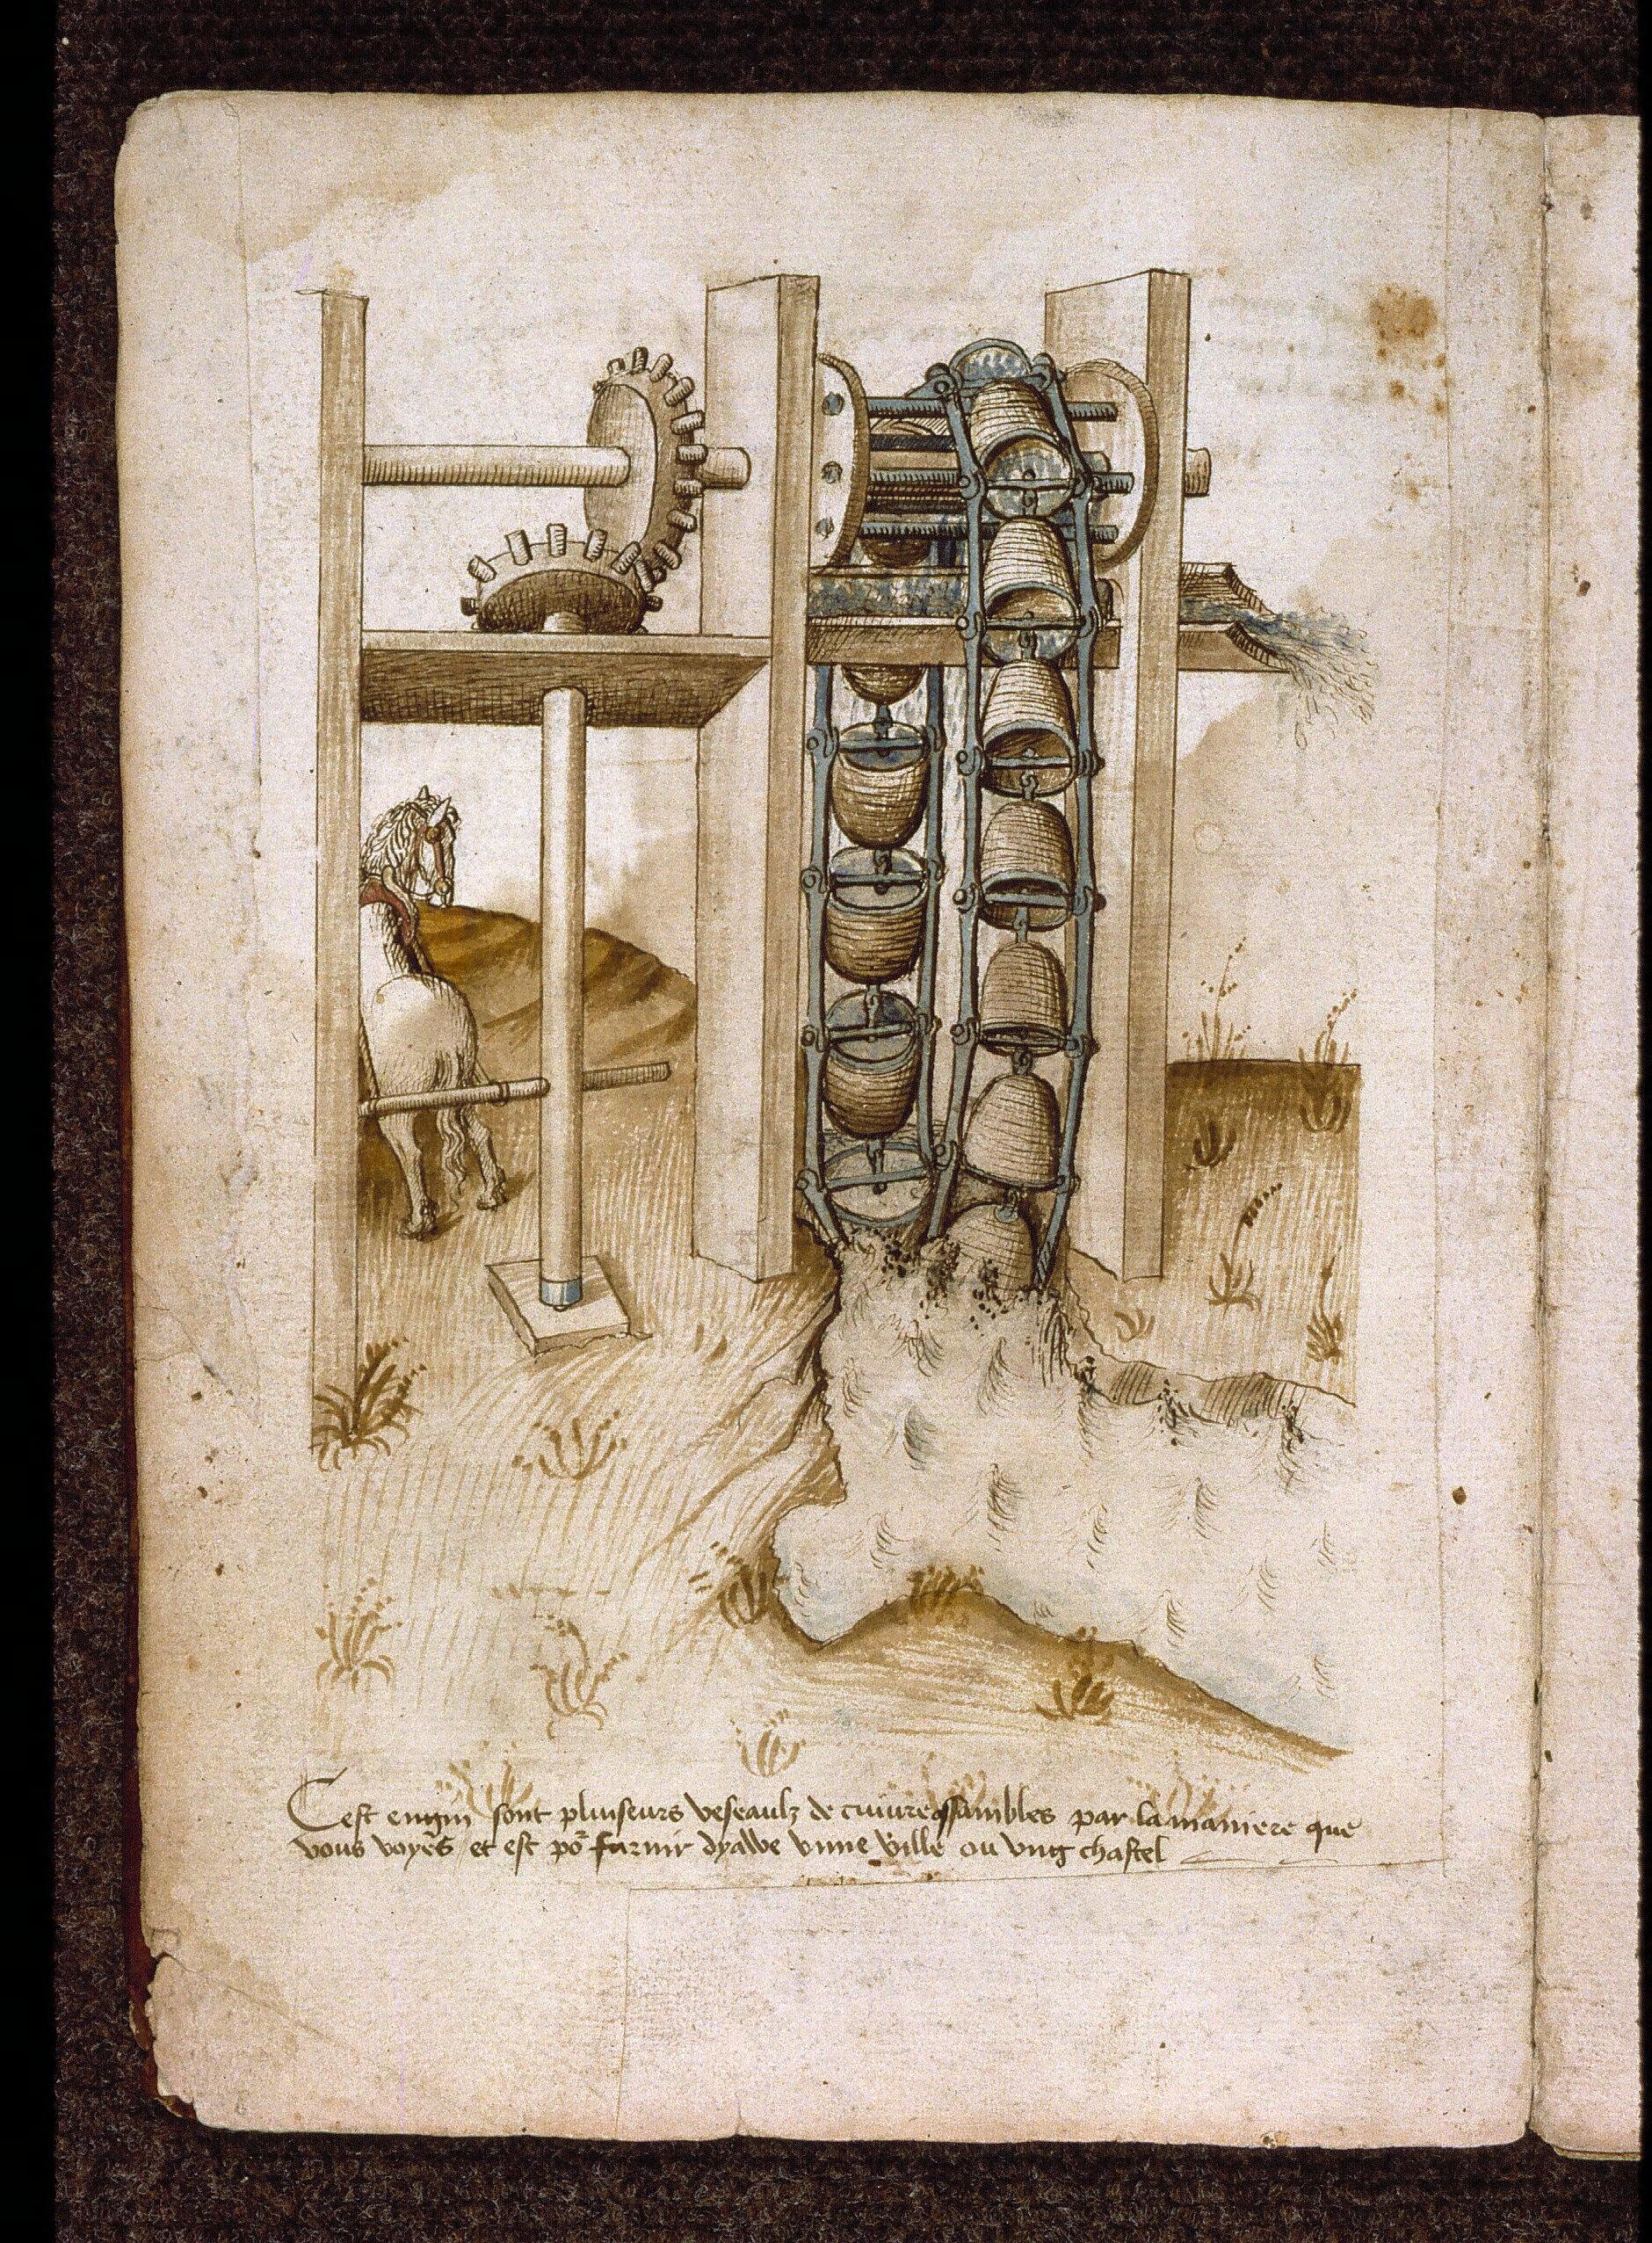 Cest engin sont pluiseurs veseaulz de cuivre assambles par la maniere que
vous voyes et est po᷑ furnir dyawe vnne ville ou vng chastel